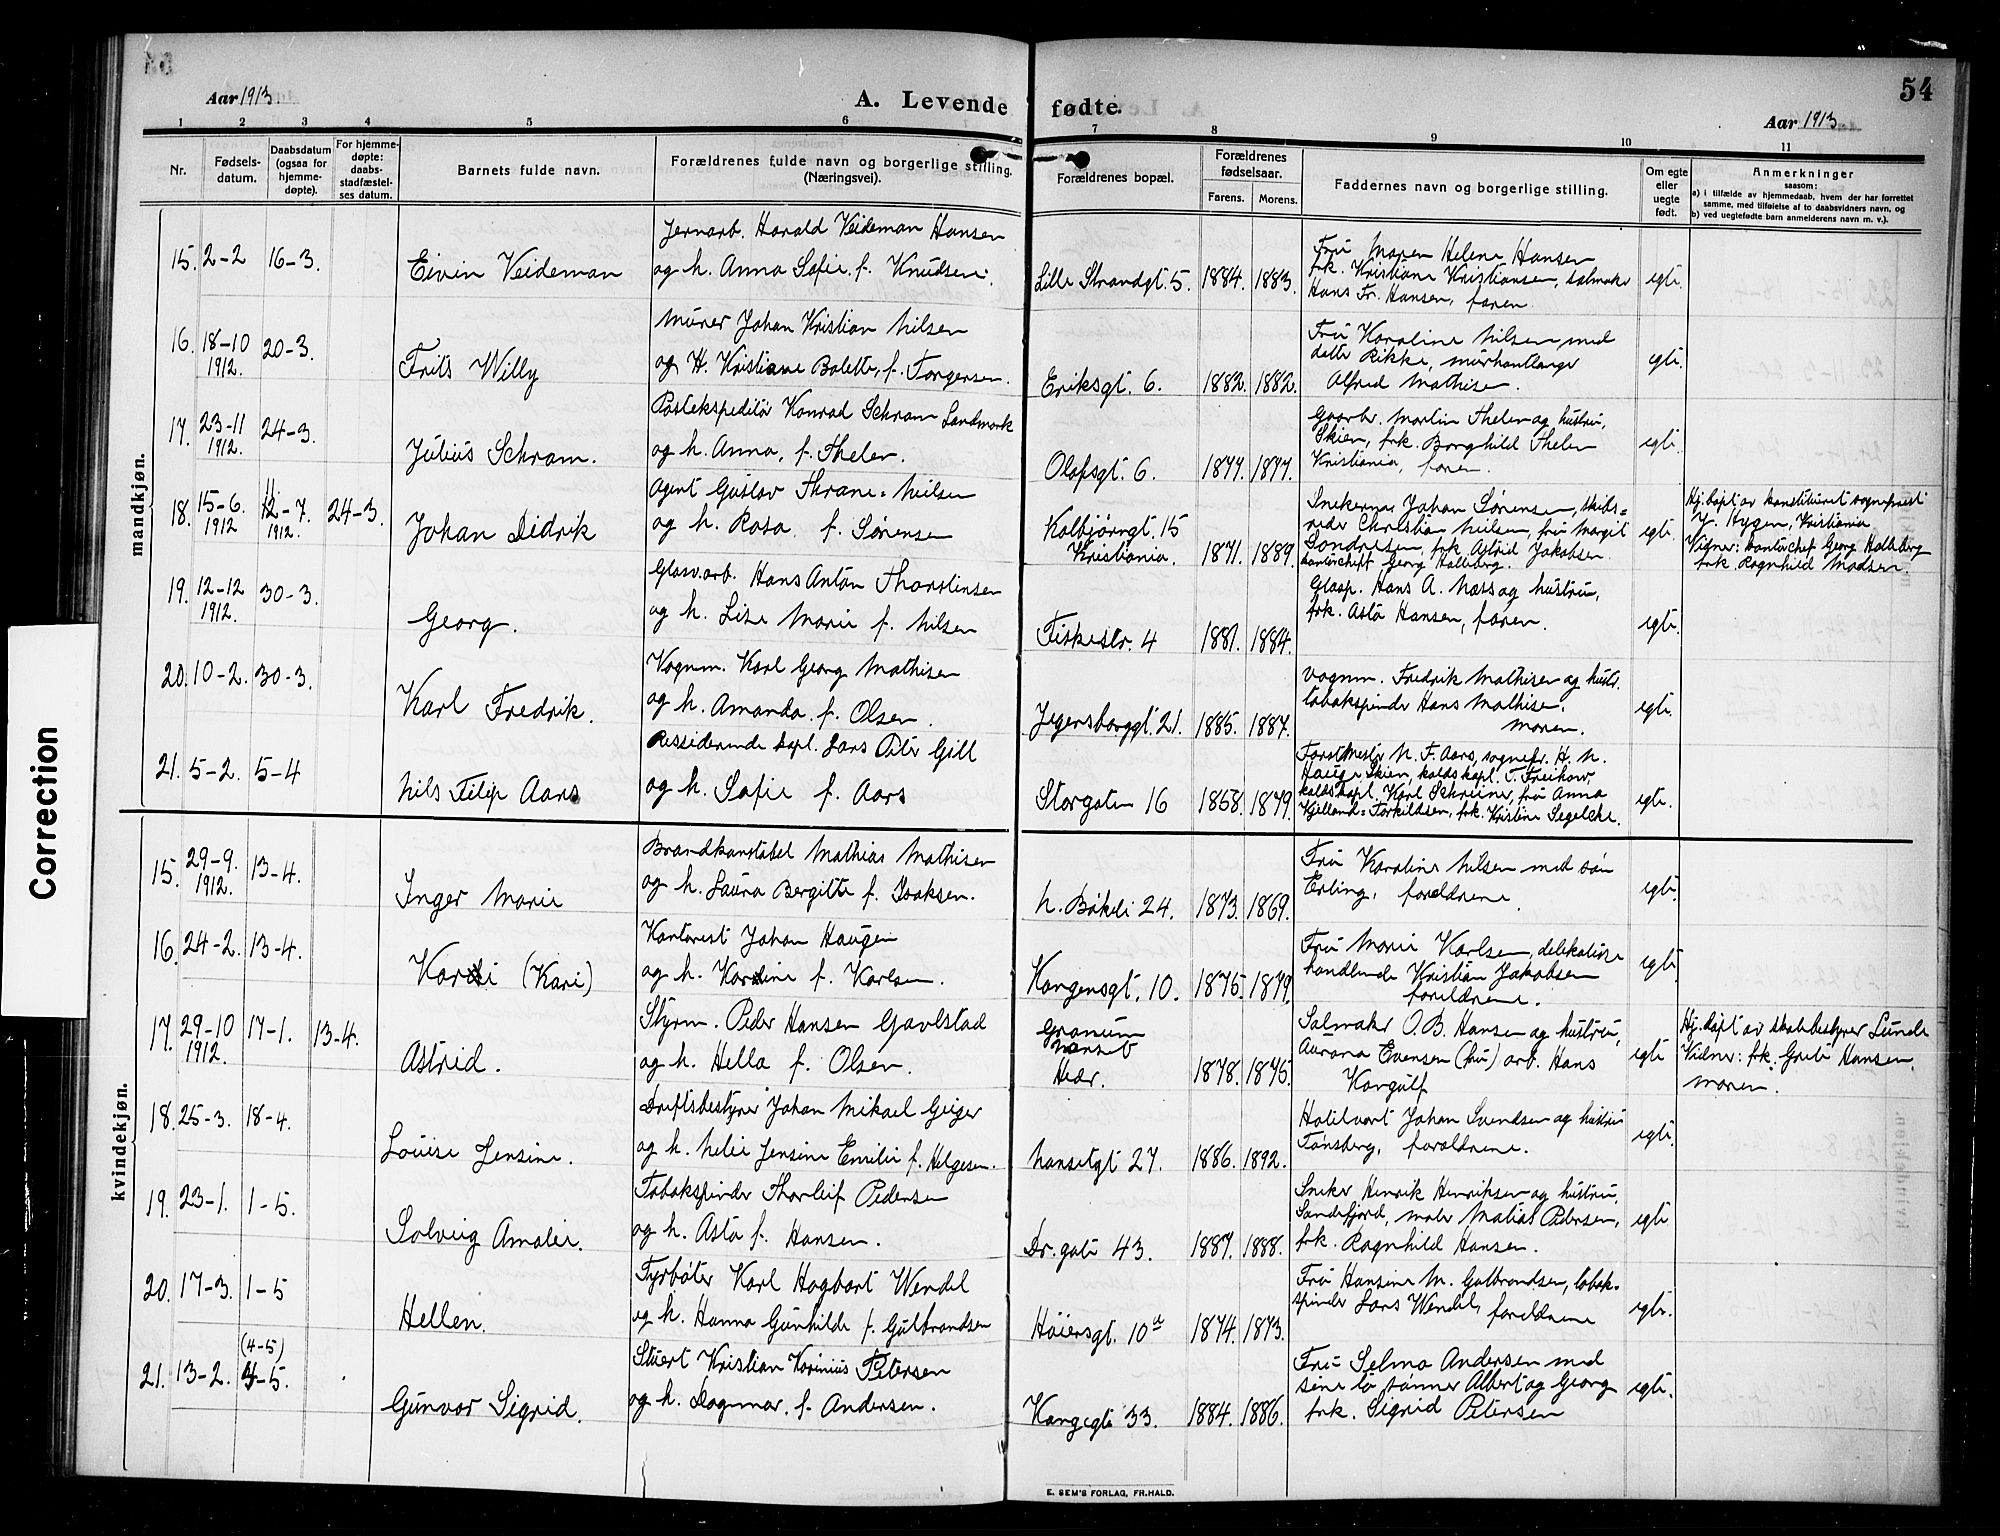 54
Aar 1913
A. Levende fødte.
Aar 1913
1 2 3 4 5 6 7 8 9 10 11
Nr.
Fødsels-
datum.
Daabsdatum
(ogsaa for
hjemme-
døpte).
For hjemme-
døpte:
daabs-
stadfæstel-
ses datum.
Barnets fulde navn.
Forældrenes fulde navn og borgerlige stilling.
(Næringsvei).
Forældrenes bopæl.
Forældrenes
fødselsaar.
Farens. Morens.
Faddernes navn og borgerlige stilling.
Om egte
eller
uegte
født.
Anmerkninger
saasom:
a) i tilfælde av hjemmedaab, hvem der har forrettet
samme, med tilføielse af to daabsvidners navn, og
b) ved uegtefødte barn anmelderens navn m. v.).
mandkjøn.
15. 2-2 16-3.
Eivin Veideman
Jernarb. Harald Veideman Hansen
og h. Anna Sofie f. Knudsen.
Lille Strandgt. 5. 1884. 1883.
Fru Maren Helene Hansen
frk. Kristiane Kristiansen, salmaker
Hans Fr. Hansen, faren.
egte.
16. 18-10 20-3.
1912.
Frits Willy
Murer Johan Kristian Nilsen
og H. Kristiane Bolette, f. Torgersen.
Eriksgt. 6. 1882. 1882.
Fru Karoline Nilsen med
datter Rikke, murhantlanger
Alfred Mathisen.
egte.
17. 23-11 24-3.
1912.
Julius Schram.
Postekspeditør Konrad Schram Landmark
og h. Anna, f. Thelen.
Olafsgt. 6. 1877. 1877.
Gaarbr. Martin Thelen og hustru,
Skien, frk. Borghild Thelen
Kristiania, faren.
egte.
18. 15-6. 12-7. 24-3.
1912 1912.
11
Johan Didrik
Agent Gustav Thrane-Nielsen
og h. Rosa f. Sørensen
Kolbjørngt. 15
Kristiania. 1871. 1889.
Snekkerm. Johan Sørensen, skibs=
reder Christian Nielsen, fru Margit
frk. Astrid Jakobsen.
Georg Hallberg.
egte.
Hj. døpt av konstitueret sogneprest
Y. Hygen, Kristiania
Vidner: kontorchef Georg Hallberg
frk. Ragnhild Madsen.
19. 12-12 30-3.
1912.
Georg.
Glasv.arb. Hans Anton Thorstensen
og h. Lise Marie f. Nilsen
Fiskestr. 4 1881. 1884.
Glasp. Hans A. Næss og hustru,
frk. Asta Hansen, faren.
egte.
20. 10-2. 30-3.
Karl Fredrik.
Vognm. Karl Georg Mathisen
og h. Amanda f. Olsen.
Jegersborggt. 21. 1885. 1887.
Vognm. Fredrik Mathisen og hustr.
tobakspinder Hans Mathisen.
moren.
egte.
21. 5-2. 5-4
Nils Filip Aars
Residerende kapl. Lars Peter Gill
og h. Sofie f. Aars
Storgaten 16 1868. 1879.
Forstmester N. F. Aars, sognepr. H. N.
Hauge, Skien, kaldskapl. T. Freihow
kaldskapl. Karl Schreiner, fru Anna
Kjelland=Torkildsen, frk. Kristine Segelcke.
egte.
kvindekjøn.
15. 29-9. 13-4.
1912.
Inger Marie
Brandkonstabel Mathias Mathisen
og h. Laura Bergitte f. Isaksen.
N. Bøkeli 24. 1873. 1869.
Fru Karoline Nilsen med søn
Erling, forældrene.
egte.
16. 24-2. 13-4.
Kari (Kari)
Kontorest Johan Haugen
og h. Kardine f. Karlsen.
Kongensgt. 10. 1875. 1879.
Fru Marie Karlsen, delikatesse
handlende Kristian Jakobsen
foreldrene.
egte.
17. 29-10 17-1. 13-4.
1912.
Astrid.
Styrm. Peder Hansen Gavlstad
og h. Hella f. Olsen.
Granum
Nanset
Hedr. 1878. 1875.
Salmaker O. B. Hansen og hustru,
Aurora Evensen (fru) arb. Hans
Kongulf
egte
Hj. døpt av skolebestyrer Lunde
Vidner: frk. Grete Hansen.
moren.
18. 25-3. 18-4.
Louise Jensine.
Driftsbestyrer Johan Mikael Geiger
og h. Nelie Jensine Emilie f. Helgesen.
Nansetgt 27. 1886. 1892.
Hotelvert Johan Svendsen og hustru
Tønsberg, forældrene.
egte.
19. 23-1. 1-5.
Solveig Amalie.
Tobakspinder Thorleif Pedersen
og h. Asta f. Hansen.
Dr. gate 43. 1887. 1888.
Sneker Henrik Henriksen og hustru,
Sandefjord, maler Matias Pedersen,
frk. Ragnhild Hansen.
egte
20. 17-3. 1-5
Hellen.
Fyrbøter Karl Hagbart Wendel
og h. Hanna Gunhilde f. Gulbrandsen
Høiersgt. 10a 1874. 1873.
Fru Hansine M. Gulbrandsen, tobak-
spinder Lars Wendel, foreldrene
egte.
(4-5)
21. 13-2. 4-5.
Gunvor Sigrid.
Stuert Kristian Karinius Petersen
og h. Dagmar f. Andersen.
Kongegt 33. 1884. 1886.
Fru Selma Andersen med
sine to sønner Albert og Georg
frk. Sigrid Petersen
egte.
E. SEM'S FORLAG, FR.HALD.
Correction